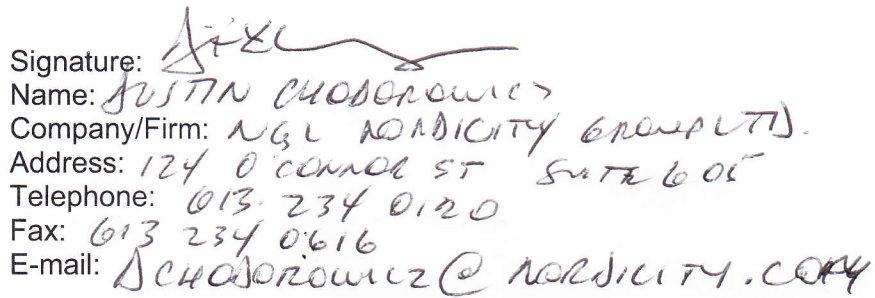 Signature:
Name: DUSTIN CHODOROWICZ
Company/Firm: NGL NORDICITY GROUP LTD.
Address: 124 O'CONNOR ST SUITE 605
Telephone: 613. 234 0120
Fax: 613 234 0616
E-mail: DCHODOROWICZ@NORDICITY.COM